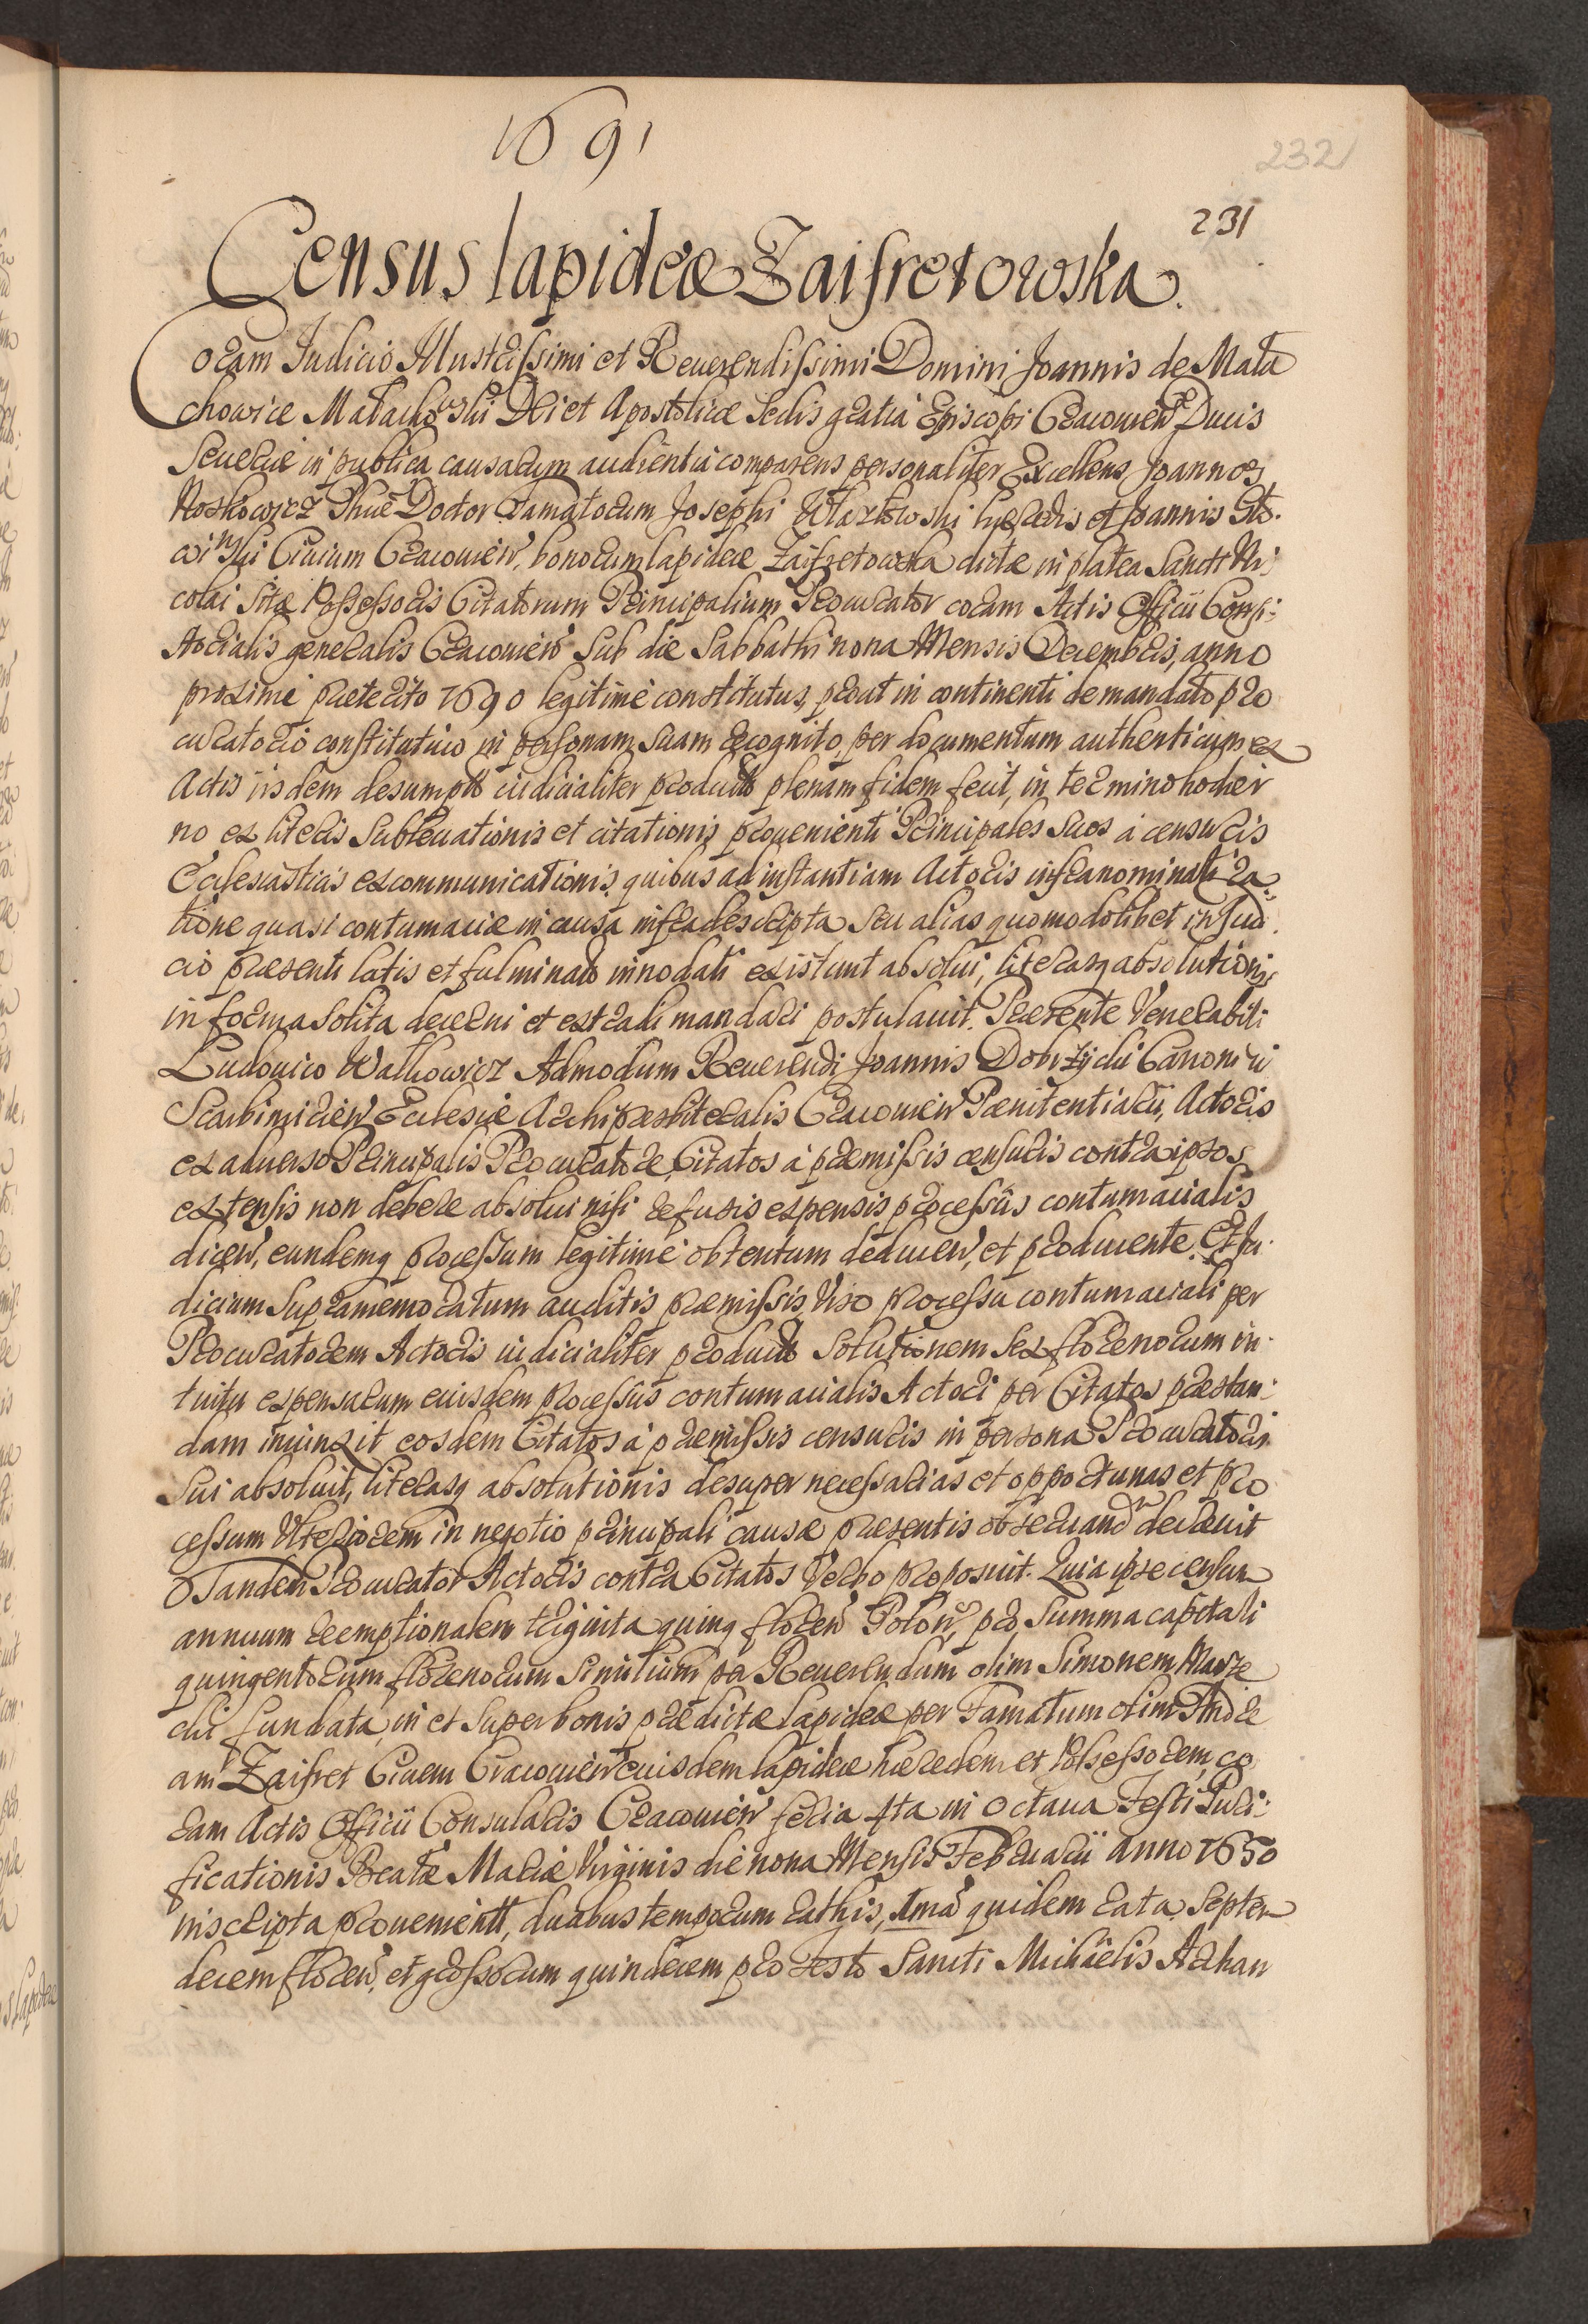 1691
232
231
Census lapideæ Zaifretowska.
Coram Iudicio Illustrissimi et Reuerendissimi Domini Joannis de Mała
chowice Małachowski Dei et Apostolicæ Sedis gratia Episcopi Cracouien Ducis
Seueriæ in publica causarum audientia comparens personaliter Excellens Joannes
Roskowicz Phiæ Doctor Famatorum Josephi hæredis et Joannis
Ciuium Cracouien, bonorum lapideæ Zaifretowska dictæ in platea Sancti Ni
colai sitæ Possessoris Citatorum Principalium Procurator coram Actis Officii Consi:
storialis generalis Cracouien sub die Sabbathi nona Mensis Decembris, anno
proximè præterito 1690 legitimè constitutus, prout in continenti de mandato pro
curatorio constitutiuo in personam suam recognito, per documentum authenticum ex
Actis iisdem desumptũ iudicialiter productũ plenam fidem fecit, in termino hodier
no ex literis subleuationis et citationis prouenienti Principales suos à censuris
Ecclesiasticis excommunicationis, quibus ad instantiam Actoris infranominati ra
tione quasi contumaciæ in causa infradescripta seu alias quomodolibet in Iudi
cio præsenti latis et fulminatis innodati existunt absolui, literasq absolutionis
in forma solita decerni et extradi mandari postulauit. Præsente Venerabili
Ludouico Walkowicz Admodum Reuerendi Joannis Dobrzycki Canonici
Scarbimirien Ecclesiæ Archipræsbiteralis Cracouien Pænitentiarii, Actoris
ex aduerso Principalis Procuratore, Citatos à præmissis censuris contra ipsos
extensis non debere absolui nisi refusis expensis processûs contumacialis
dicen, eundemq processum legitimè obtentum deducen, et producente. Et Iu
dicium supramemoratum auditis præmissis, Viso processu contumaciali per
Procuratorem Actoris iudicialiter productũ solutionem sex florenorum in
tuitu expensarum eiusdem processus contumacialis Actori per Citatos præstan:
dam iniunxit eosdem Citatos à præmissis censuris in persona Procuratoris
sui absoluit, literasq absolutionis desuper necessarias et opportunas et pro
cessum Vlteriorem in negotio principali causæ præsentis obseruand decreuit
Tandem Procurator Actoris contra Citatos Verbo proposuit. Quia ipse censum
annuum reemptionalem triginta quinq floren Polon, pro summa capitali
quingentorum florenorum similium per Reuerendum olim Simonem
fundata, in et super bonis prædictæ lapideæ per Famatum olim Andre
am Zaifret Ciuem Cracouien eiusdem lapideæ hæredem et Possessorem, co
ram Actis Officii Consularis Cracouien feria 4ta in Octaua Festi Puri:
ficationis Beatæ Mariæ Virginis die nona Mensis Februarii anno 1650
inscripta prouenientẽ, duabus temporum rathis, 1ma quidem rata septem
decem floren, et grossorum quindecem pro Festo Sancti Michaëlis Archan